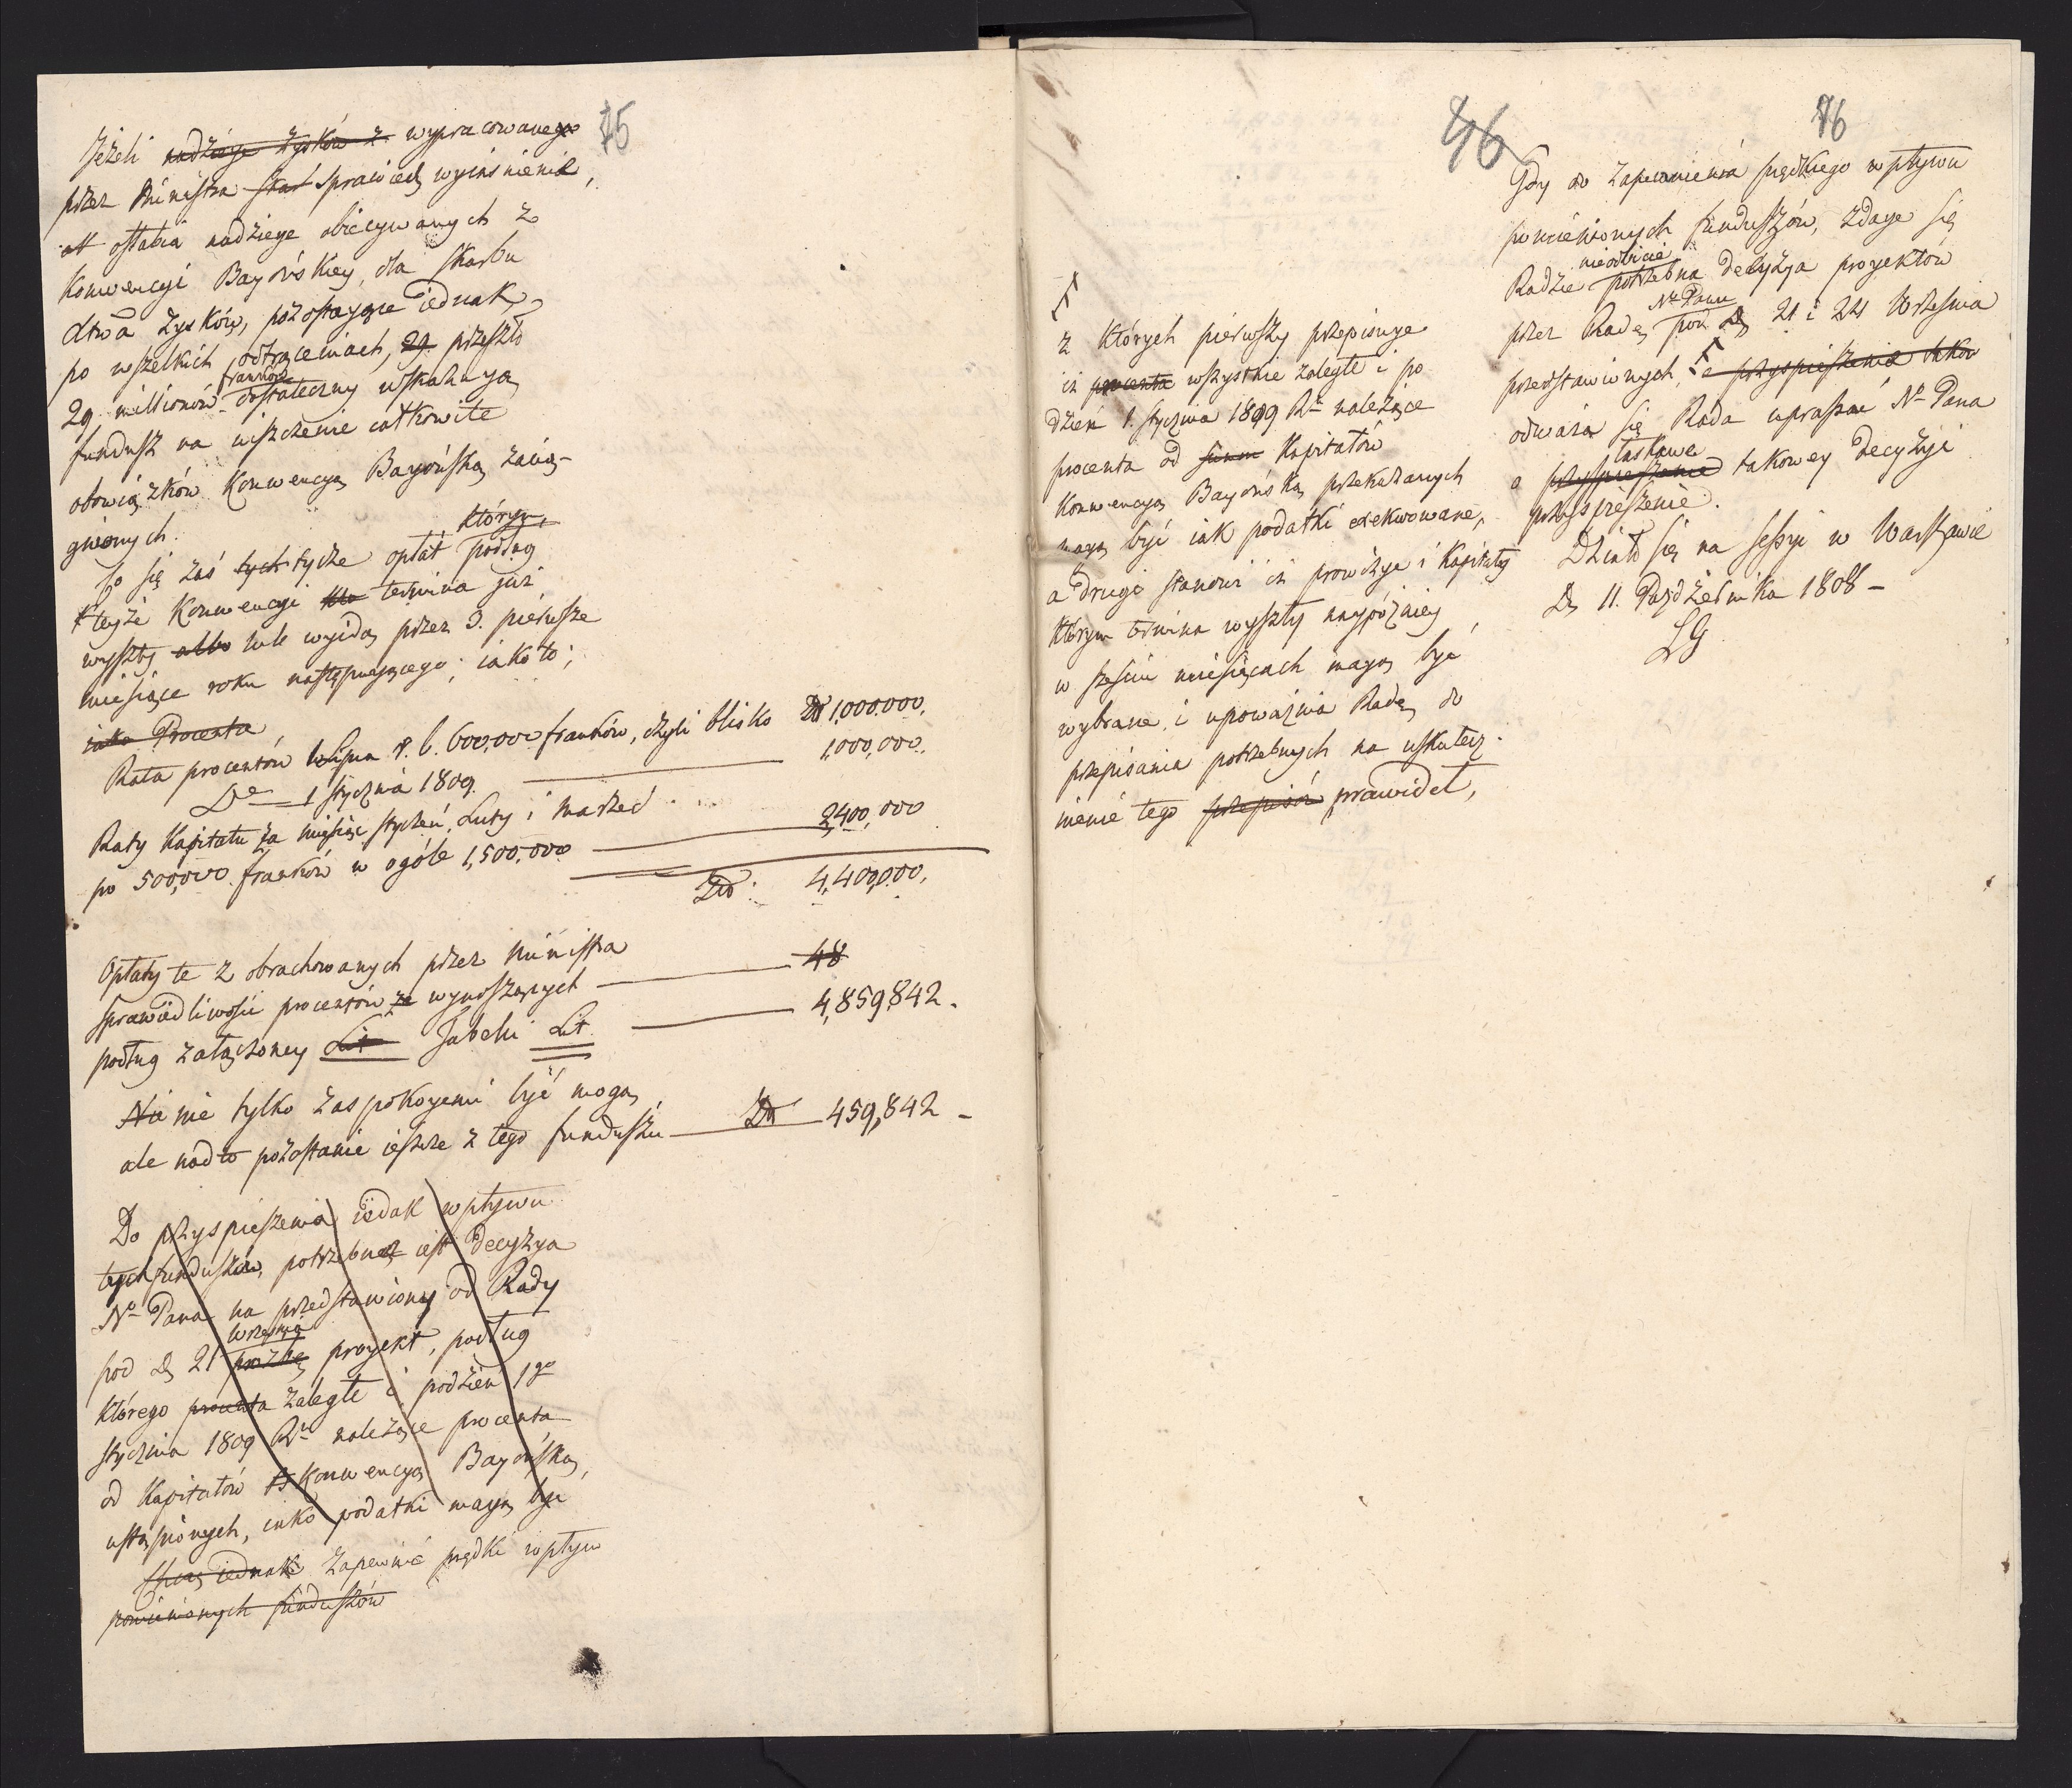 75
Jeżeli nadzieję zysków z wypracowanego
przez Ministra Skar Sprawied wyiaśnienie,
osłabia nadzieye obiecywanych z
Konwencyi Bayońskiey, dla skarbu
zysków, pozostaiące iednak
po wszelkich odtrąceniach, 29. przeszło
29. millionów franków dostateczny wskazuią
fundusz na uiszczenie całkowite
obowiązków Konwencyą Bayońską zacią-
gnionych.
Co się zaś tych tycze opłat którym podług
teyże Konwencyi termina już
wyszły albo lub wyidą przez 3. pierwsze
miesiące roku następuiącego; iako to;
iako Procenta
Rata procentów Lipca r. b. 600,000 franków, czyli blisko Zł 1,000,000.
1 stycznia 1809. 1,000,000.
Raty Kapitału za miesiąc styczeń, Luty i Marzec
po 500,000 franków w ogóle 1,500,000 2,400,000
Zł: 4,400,000.
Opłaty te z obrachowanych przez Ministra 48
Sprawiedliwości procentów za wynoszących
podług załączoney Lit Tabelli Lit 4,859,842.
Nie nie tylko zaspokoyemi być mogą,
ale nadto pozostanie ieszcze z tego funduszu Zł 459,842 -
Do przyspieszenia iedak wpływu
tych funduszów, potrzebna iest decyzya
Nº Pana na przedstawiony od Rady
pod d. 21 prozbę Września proyekt, podług
którego procenta zaległe i podzień 1go
stycznia 1809 Ru należące procenta
od Kapitałów Konwencyą Bayońską,
ustąpionych, iako podatki maią być
Chcąc iednak zapewnić prędki wpływ
pomienionych funduszów
46
76
z których pierwszy przepisuye
iż procenta wszystkie zaległe i po
dzień 1. stycznia 1809 Ru należące
procenta od summ Kapitałów
Konwencyą Bayońską przekazanych
maią być iak podatki exekwowane,
a drugi stanowi iż prowizye i Kapitały
którym termina wyszły naypóźniey
w sześciu miesiącach maią być
wybrane, i upoważnia Radę do
przepisania potrzebnych na uskutecz-
nienie tego przepisów prawideł,
Gdy do zapewnienia prędkiego wpływu
pomienionych funduszów, zdaye się
Radzie nieodbicie potrzebna decyzya proyektów
przez Radę Nº Panu pod d. 21 i 24 Września
przedstawionych, o przyspieszenie takow
odważa się Rada upraszać Nº Pana
o przyspieszenie łaskawe takowey decyzyi
przyspieszenie.
Działo się na sessyi w Warszawie
d. 11. Października 1808 -
LG